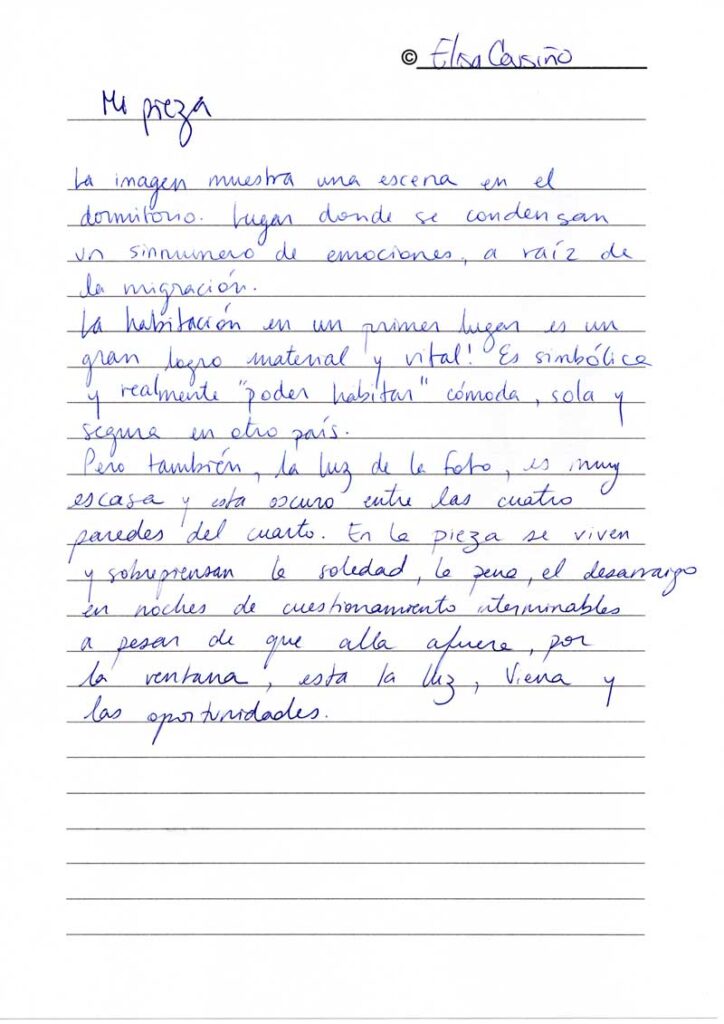 © Elisa Cariño
Mi pieza
La imagen muestra una escena en el
dormitorio. Lugar donde se condensan
un sinnumero de emociones, a raíz de
la migración.
La habitación en un primer lugar es un
gran logro material y vital! Es simbólica
y realmente "poder habitar" cómoda, sola y
segura en otro país.
Pero también, la luz de la foto, es muy
escasa y esta oscuro entre las cuatro
paredes del cuarto. En la pieza se viven
y sobrepiensan la soledad, la pena, el desarraigo
en noches de cuestionamiento interminables
a pesar de que alla afuera, por
la ventana, esta la luz, Viena y
las oportunidades.